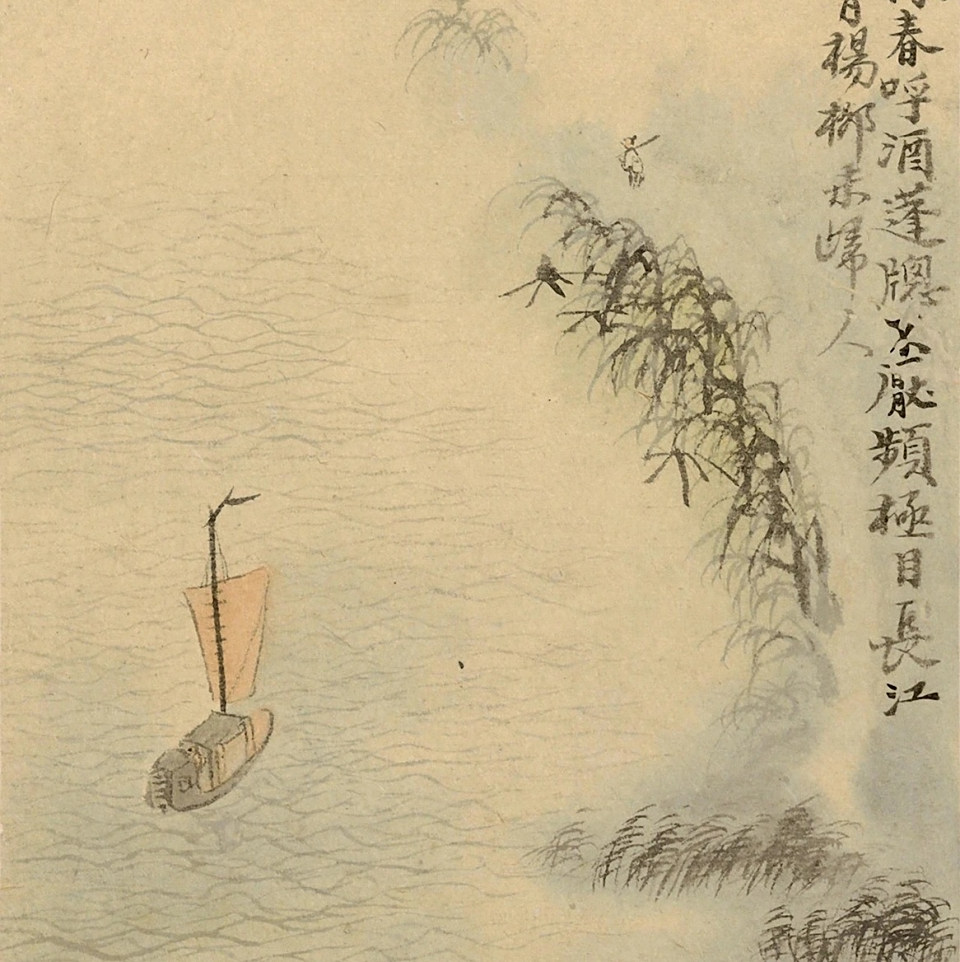 春呼酒蓬牕不厭頻極目長江
楊柳未歸人